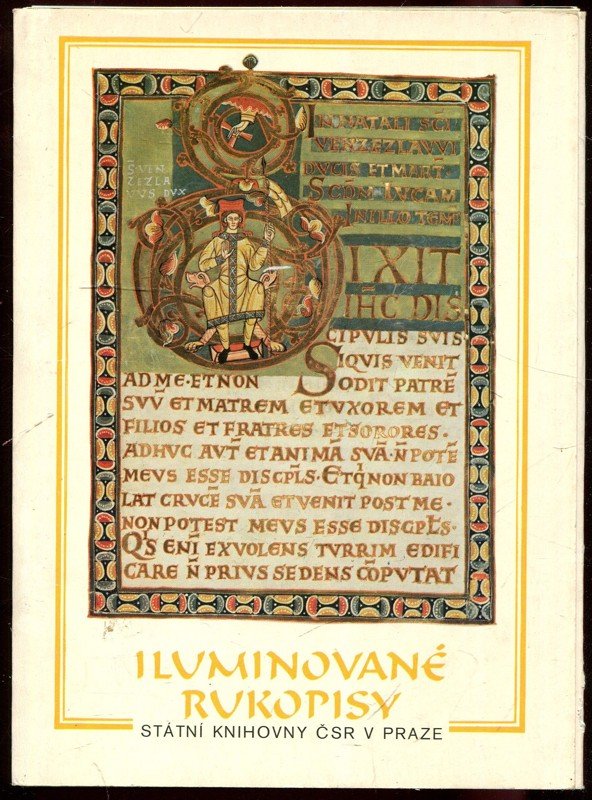 IN NATALI SCI
VENZEZLAVVI
DVCIS ET MART
SCDM LVCAM
IN ILLO TEMP
S VEN
ZEZLA
VVS DVX
DIXIT
IHC DIS
CIPVLIS SVIS
SIQVIS VENIT
AD ME·ET NON ODIT PATRE
SVV̄ ET MATREM ET VXOREM ET
FILIOS ET FRATRES ET SORORES·
ADHVC AVT̄ ET ANIMĀ SVĀ·N̄ POTE
MEVS ESSE DISCPLS·ET Q̇I NON BAIO
LAT CRVCĒ SVĀ ET VENIT POST ME·
NON POTEST MEVS ESSE DISCPLS·
QS ENĪ EX VOLENS TVRRIM EDIFI
CARE N̄ PRIVS SEDENS CŌPVTAT
ILUMINOVANÉ
RUKOPISY
STÁTNÍ KNIHOVNY ČSR V PRAZE